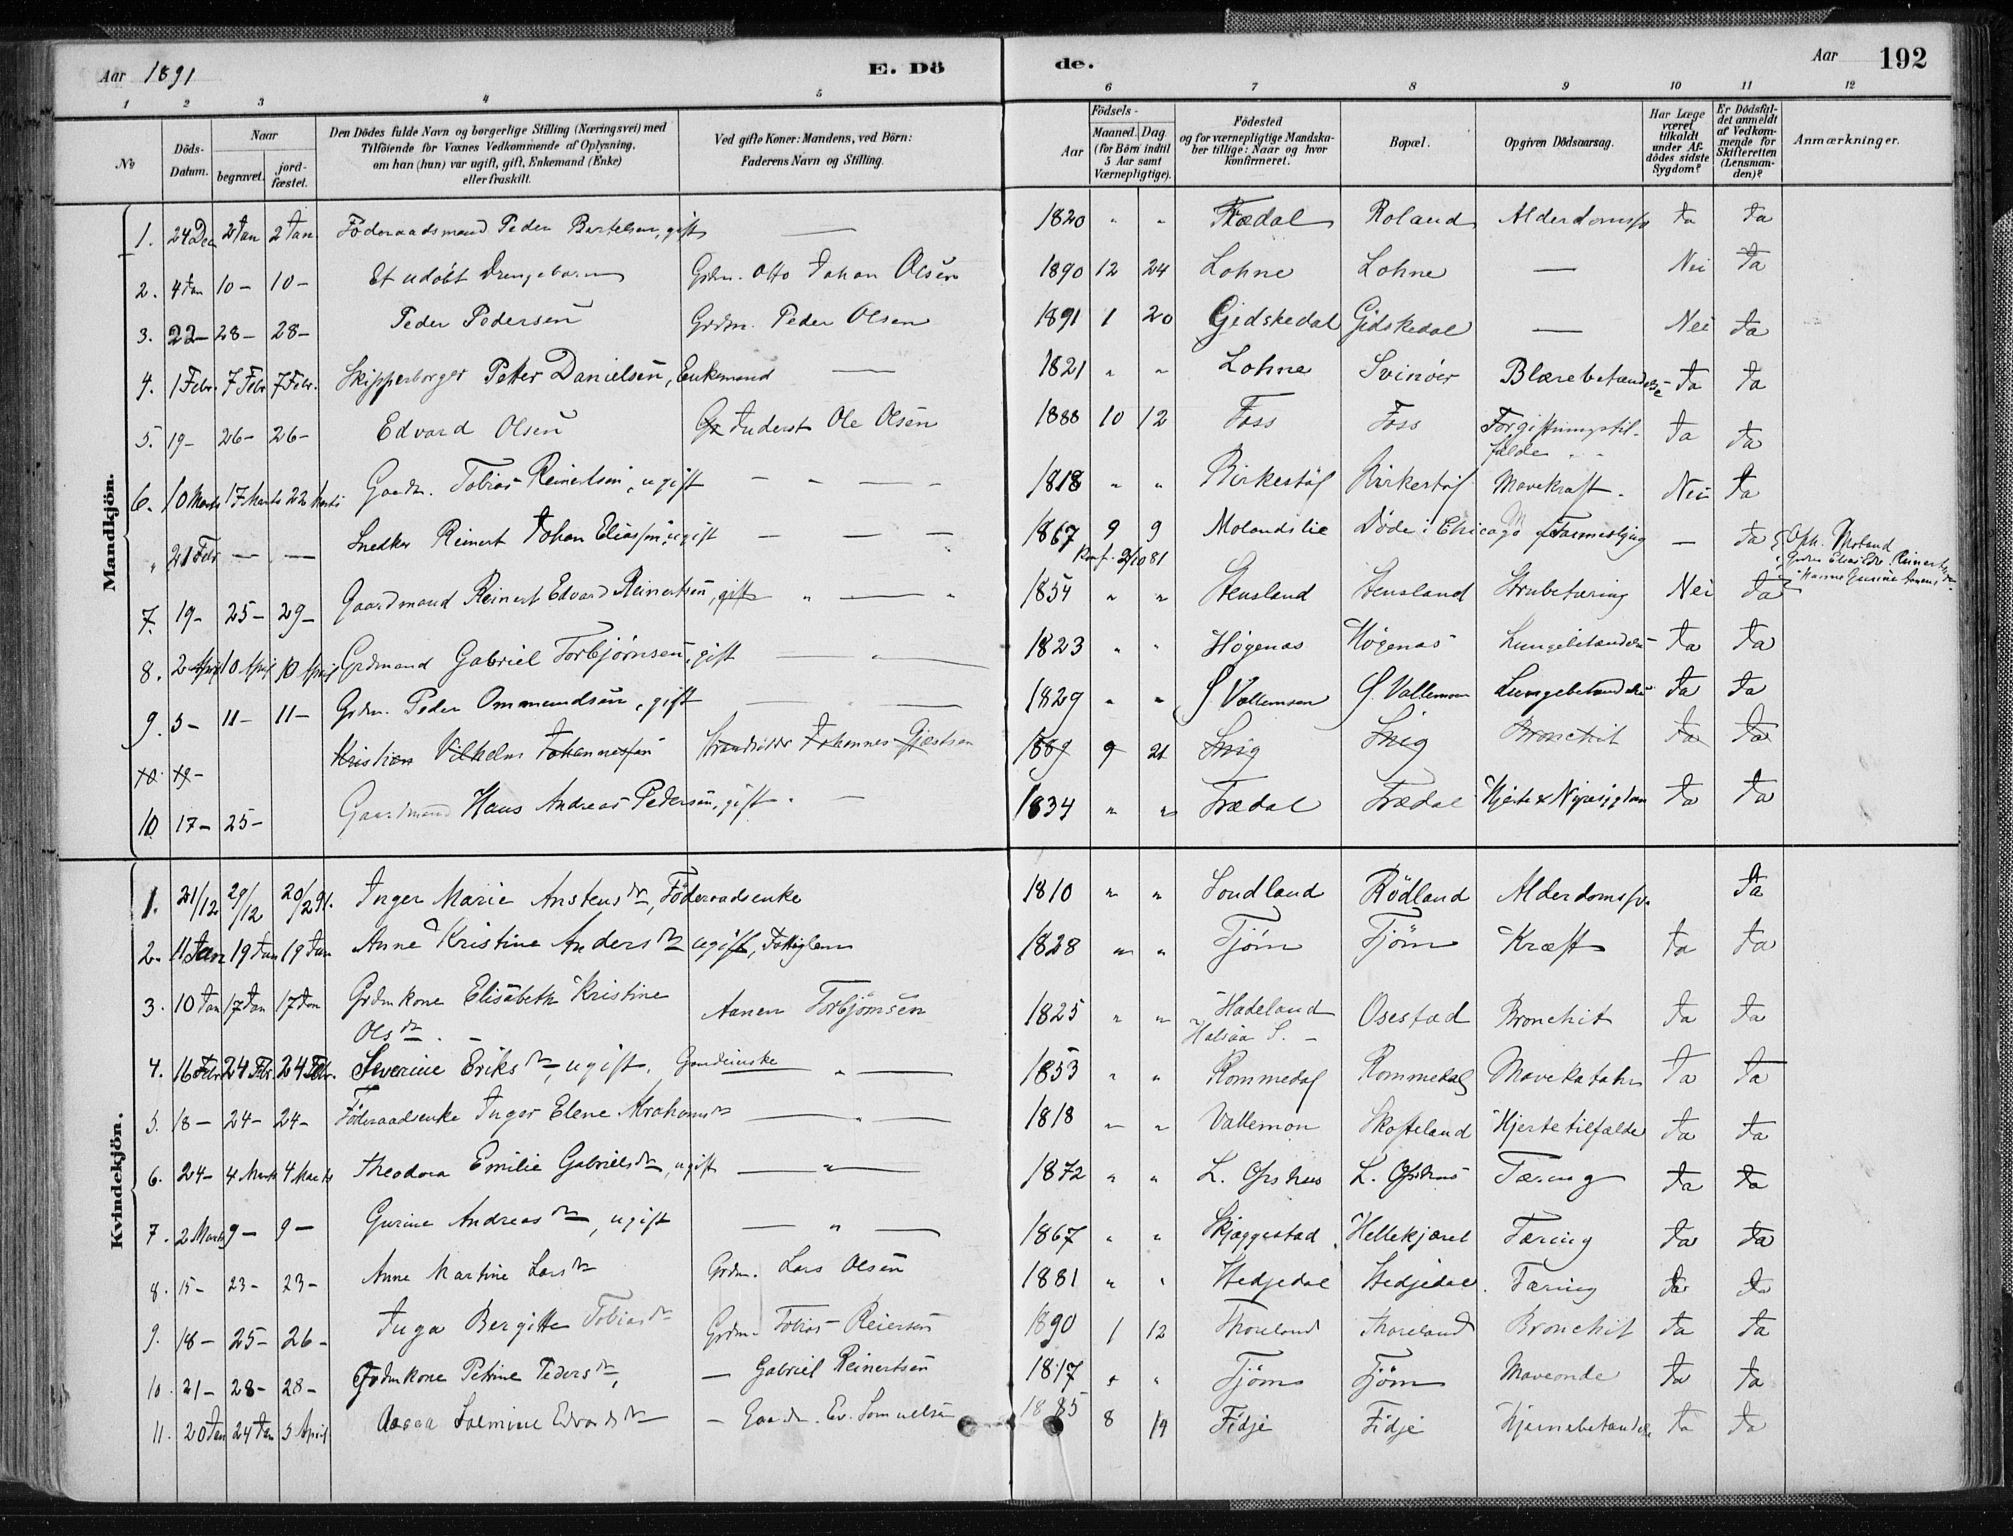 Aar 1891 E. Dö de. Aar 192
1 2 3 4 5 6 7 8 9 10 11 12
No Döds-Datum. Naar begravet. jordfæstet. Den Dödes fulde Navn og borgerlige Stilling (Næringsvei) med Tilföiende for Voxnes Vedkommende af Oplysning, om han (hun) var ugift, gift, Enkemand (Enke) eller fraskilt. Ved gifte Koner: Mandens, ved Börn: Faderens Navn og Stilling. Födsels- Aar Maaned. Dag (for Börn indtil 5 Aar samt Værnepligtige). Födested og for værnepligtige Mandskaber tillige: Naar og hvor konfirmeret. Bopæl. Opgiven Dödsaarsag. Har Læge været tilkaldt under Afdödes sidste Sygdom? Er Dödsfaldet anmeldt af Vedkommende for Skifteretten (Lensmanden)? Anmærkninger.
Mandkjön.
1. 24 Dec 2 Jan 2 Jan Föderaadsmand Peder Bertelsen, gift — 1820 " " Trædal Roland Alderdomssv Ja Ja
2. 4 Jan 10 – 10 – Et udöbt Drengebarn Grdm. Otto Johan Olsen 1890 12 24 Lohne Lohne — Nei Ja
3. 22 – 28 – 28 – Peder Pedersen Grdm. Peder Olsen 1891 1 20 Gjedskedal Gidskedal — Nei Ja
4. 1 Febr. 7 Febr 7 Febr. Skipperborger Petter Danielsen, Enkemand — 1821 " " Lohne Svinöer Blærebetændelse Ja Ja
5. 19 – 26 – 26 – Edvard Olsen Inderst Ole Olsen 1888 10 12 Foss Foss Forgiftningstilfælde Ja Ja
6. 10 Marts 17 Marts 22 Marts Gaardm. Tobias Reinertsen, ugift – – – – 1818 " " Birkestöl Birkestöl Mavekræft Nei Ja
" 21 Febr — — Snedker Reinert Johan Eliassen, ugift — — — 1867 9 9 Molandslie Döde i Chicago — Ja
Konf. 2/10 81
7. 19 – 25 – 29 – Gaardmand Reinert Edvard Reinertsen, gift " — " 1854 " " Stensland Stensland Strubetæring Nei Ja
8. 2 April 10 April 10 April Grdmand Gabriel Torbjörnsen, gift — " — 1823 " " Högenas Högenas Lungebetændelse Ja Ja
9. 5 – 11 – 11 – Grdm. Peder Ommundsen, gift — " — 1829 " " S. Vallemsen S. Vallemon Lungebetændelse Ja Ja
10. 19 – Kristian Vilhelm Johannessen Strandsidder Johannes Gjertsen 1889 9 21 Snig Snig Bronchit Ja Ja
10. 17 – 25 – Gaardmand Hans Andreas Pedersen, gift – — 1834 " " Trædal Trædal Hjerte & Nyresygdom Ja Ja
Kvindekjön.
1. 21/12 29/12 20/2 91. Inger Marie Anstensdtr, Föderaadsenke 1810 " " Sondland Rödland Alderdomssv. Ja
2. 11 Jan 19 Jan 19 Jan Anne Kristine Andersdtr ugift, Fattiglem 1828 " " Tjöm Tjöm Kræft Ja Ja
3. 10 Jan 17 Jan 17 Jan Grdmkone Elisabeth Kristine Aanen Torbjörnsen 1825 " " Hadeland Osestad Bronchit Ja Ja
Olsdtr. – Halsaa S. –
4. 16 Febr 24 Febr 24 Febr. Severine Eriksdtr, ugift. — " — 1853 " " Rommedal Rommedal Mavekatahr Ja Ja
5. 18 – 24 – 24 – Föderaadsenke Inger Elene Abrahamsdtr — " — 1818 " " Vallemon Skofteland Hjertetilfælde Ja Ja
6. 24 – 4 Marts 4 Marts Theodora Emilie Gabrielsdtr, ugift — " — 1872 " " L. Ophus L. Ophus Tæring Ja Ja
7. 2 Marts 9 – 9 – Gurine Andreasdtr, ugift — " — 1867 " " Skjæggestad Hellekjæret Tæring Ja Ja
8. 15 – 23 – 23 – Anne Martine Larsdtr Grdm. Lars Olsen 1881 " " Stedjedal Stedjedal Tæring Ja Ja
9. 18 – 25 – 26 – Inga Bergitte Tobiasdtr Grdm. Tobias Reiersen 1890 1 12 Thoreland Thoreland Bronchit Ja Ja
10. 21 – 28 – 28 – Grdmkone Petrine Pedersdtr, — Gabriel Reinertsen 1817 " " Tjöm Tjöm Maveonde Ja Ja
11. 20 Jan 24 Jan 5 April Aasaa Salmine Edvardsdtr – Gaardm. Ev. Samuelsen 1885 8 19 Fidje Fidje Hjernebetændelse Ja Ja